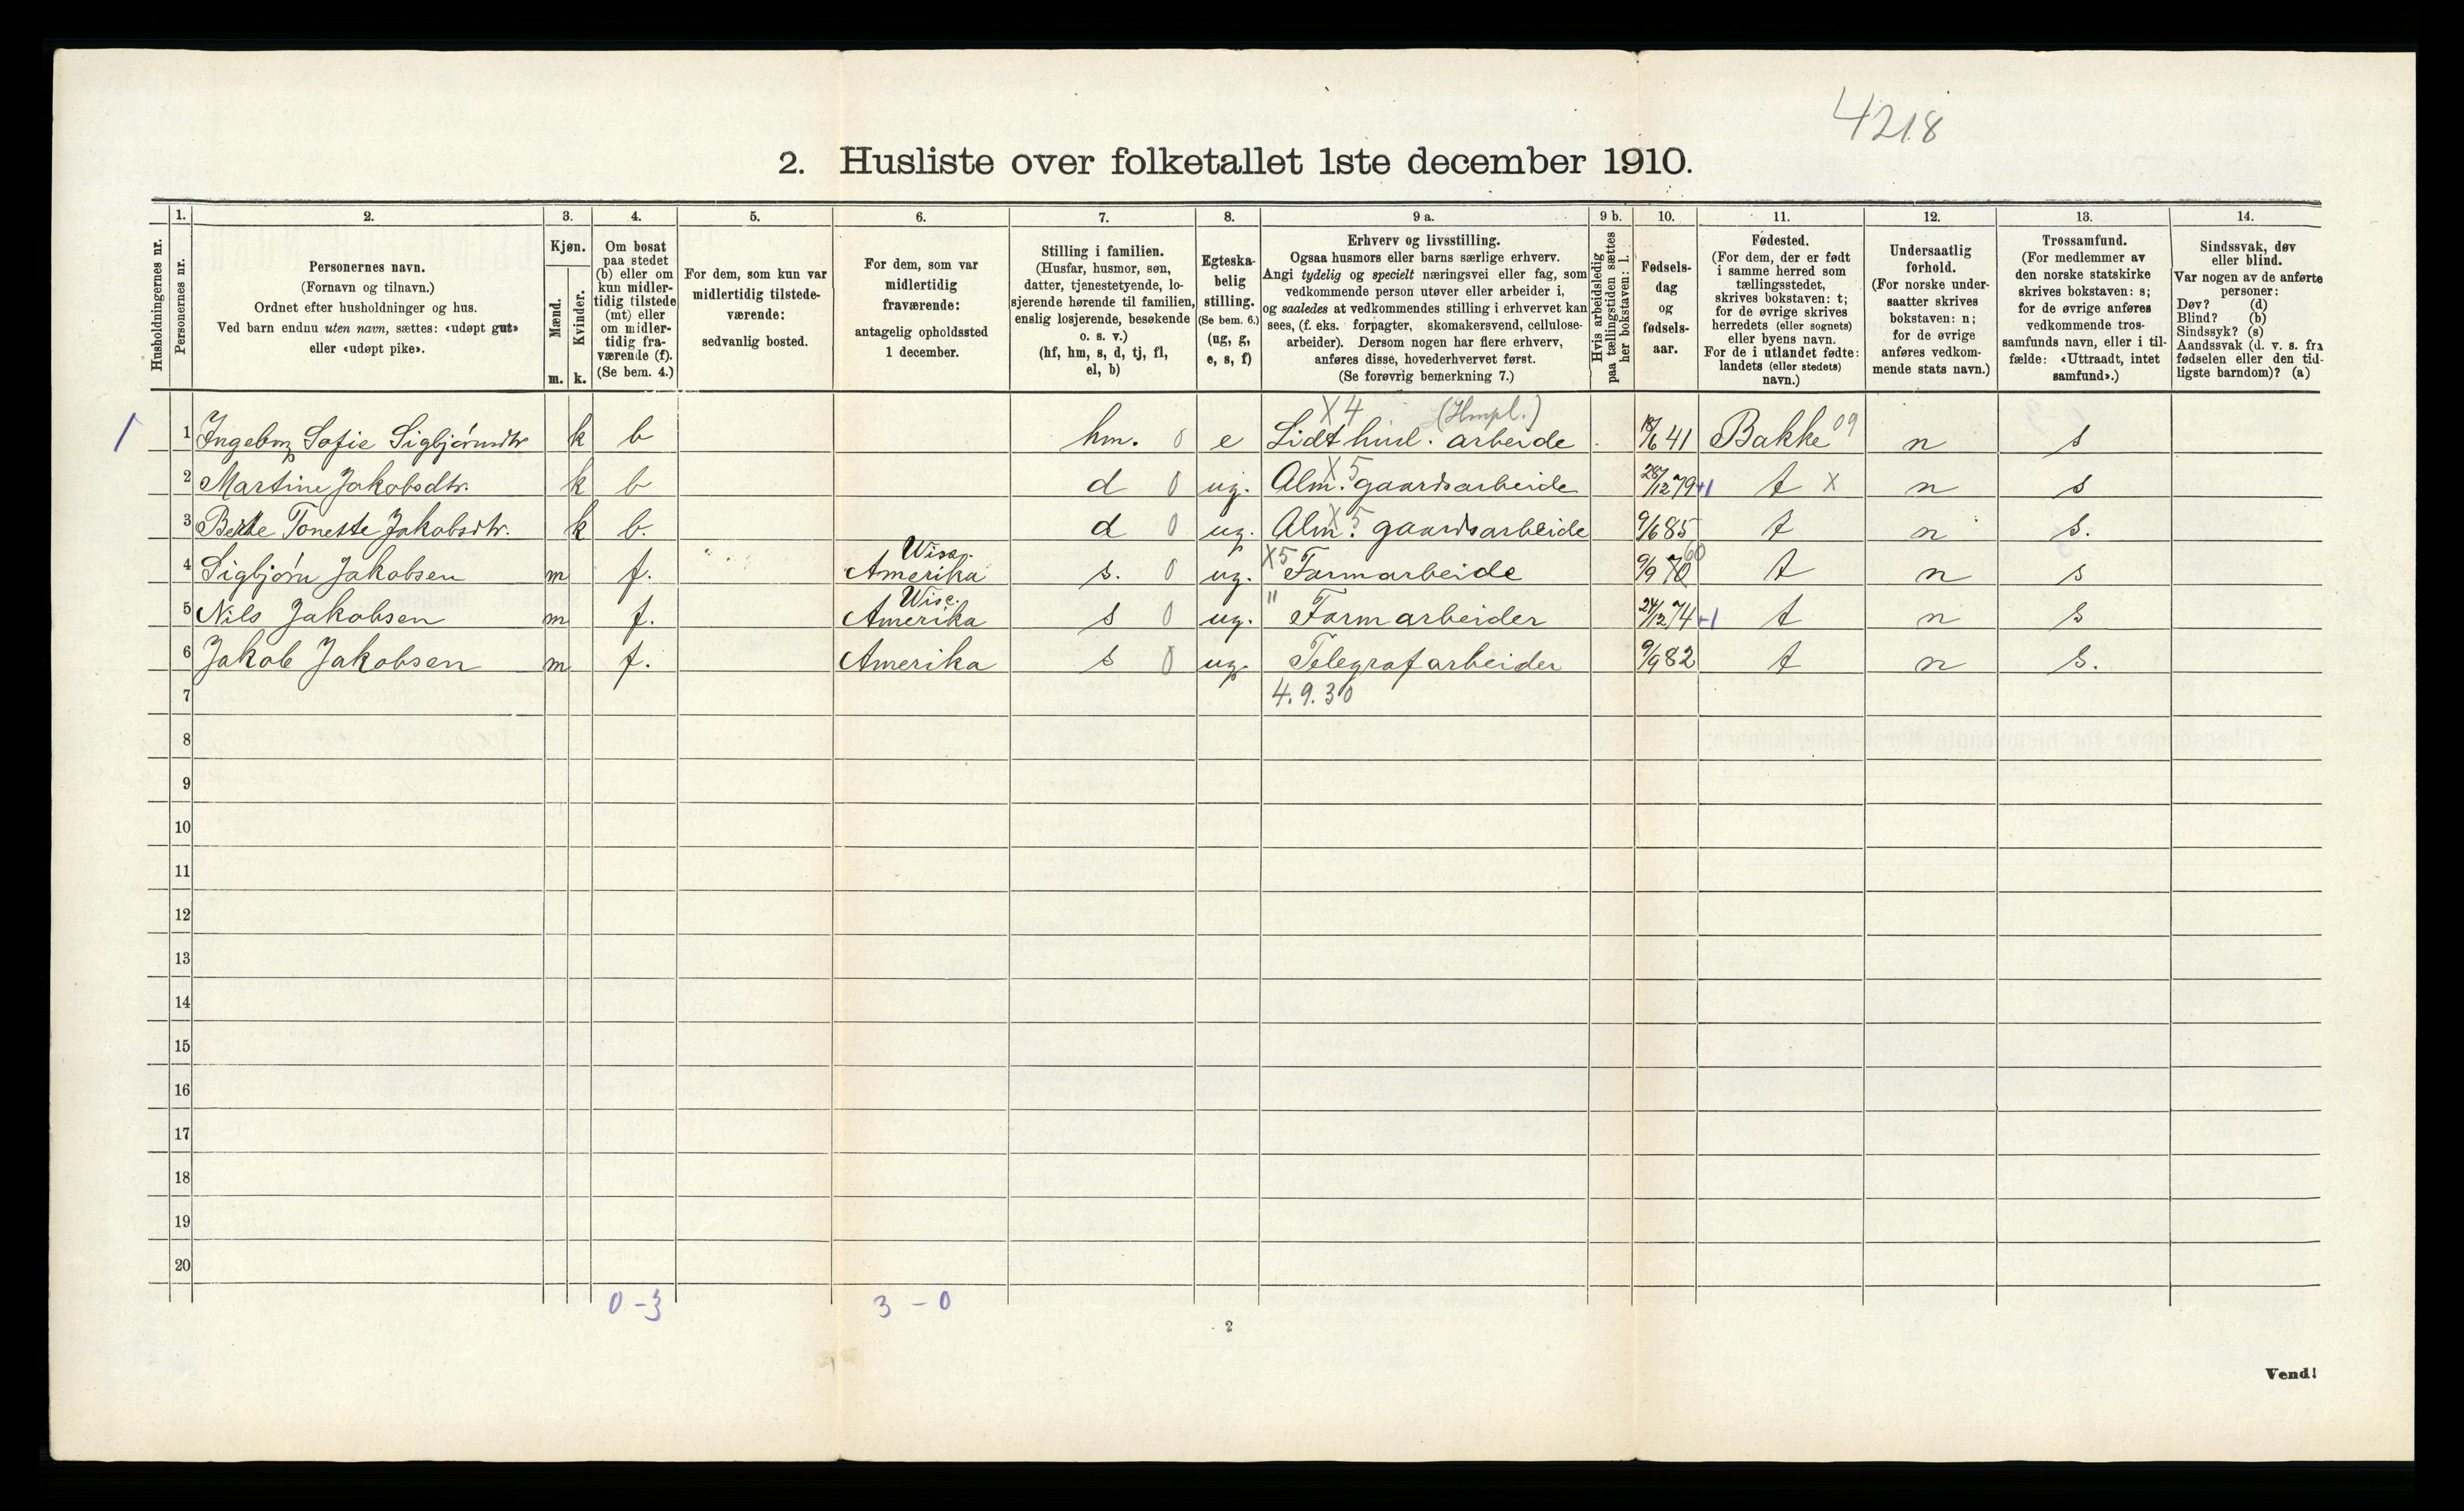 4218
2. Husliste over folketallet 1ste december 1910.
Husholdningernes nr.
1. Personernes nr.
2. Personernes navn.
(Fornavn og tilnavn.)
Ordnet efter husholdninger og hus.
Ved barn endnu uten navn, sættes: «udøpt gut»
eller «udøpt pike».
3. Kjøn.
Mænd. m.
Kvinder. k.
4. Om bosat
paa stedet
(b) eller om
kun midler-
tidig tilstede
(mt) eller
om midler-
tidig fra-
værende (f).
(Se bem. 4.)
5. For dem, som kun var
midlertidig tilstede-
værende:
sedvanlig bosted.
6. For dem, som var
midlertidig
fraværende:
antagelig opholdssted
1 december.
7. Stilling i familien.
(Husfar, husmor, søn,
datter, tjenestetyende, lo-
sjerende hørende til familien,
enslig losjerende, besøkende
o. s. v.)
(hf, hm, s, d, tj, fl,
el, b)
8. Egteska-
belig
stilling.
(Se bem. 6.)
(ug, g,
e, s, f)
9 a. Erhverv og livsstilling.
Ogsaa husmors eller barns særlige erhverv.
Angi tydelig og specielt næringsvei eller fag, som
vedkommende person utøver eller arbeider i,
og saaledes at vedkommendes stilling i erhvervet kan
sees, (f. eks. forpagter, skomakersvend, cellulose-
arbeider). Dersom nogen har flere erhverv,
anføres disse, hovederhvervet først.
(Se forøvrig bemerkning 7.)
9 b. Hvis arbeidsledig
paa tællingstiden sættes
her bokstaven: l.
10. Fødsels-
dag
og
fødsels-
aar.
11. Fødested.
(For dem, der er født
i samme herred som
tællingsstedet,
skrives bokstaven: t;
for de øvrige skrives
herredets (eller sognets)
eller byens navn.
For de i utlandet fødte:
landets (eller stedets)
navn.)
12. Undersaatlig
forhold.
(For norske under-
saatter skrives
bokstaven: n;
for de øvrige
anføres vedkom-
mende stats navn.)
13. Trossamfund.
(For medlemmer av
den norske statskirke
skrives bokstaven: s;
for de øvrige anføres
vedkommende tros-
samfunds navn, eller i til-
fælde: «Uttraadt, intet
samfund».)
14. Sindssvak, døv
eller blind.
Var nogen av de anførte
personer:
Døv? (d)
Blind? (b)
Sindssyk? (s)
Aandssvak (d. v. s. fra
fødselen eller den tid-
ligste barndom)? (a)
X4 (Hmpl.)
1 1 Ingeborg Sofie Sigbjørnsdtr k b hm. 0 e Lidt husl. arbeide 18/6 41 Bakke 09 n s
2 Martine Jakobsdtr. k b d 0 ug. X5 Alm. gaardsarbeide 28/12 79 +1 t X n s
3 Berthe Tonette Jakobsdtr. k b. d 0 ug. X5 Alm. gaardsarbeide 9/6 85 t n s.
4 Sigbjørn Jakobsen m f. Wisc. Amerika s. 0 ug. X5 Farmarbeide 9/9 70 60 t n s
5 Nils Jakobsen m f. Wisc. Amerika s 0 ug. " Farmarbeider 24/12 74 +1 t n s
6 Jakob Jakobsen m f. Amerika s 0 ug. Telegrafarbeider 9/9 82 t n s.
7 4.9.30
8
9
10
11
12
13
14
15
16
17
18
19
20
0 - 3 3 - 0
2
Vend!